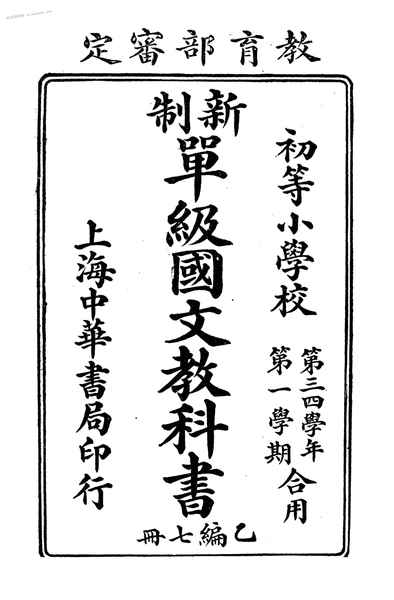 教育部審定
初等小學校
第三四學年
第一學期
合用
新制
單級國文教科書
乙編七冊
上海中華書局印行